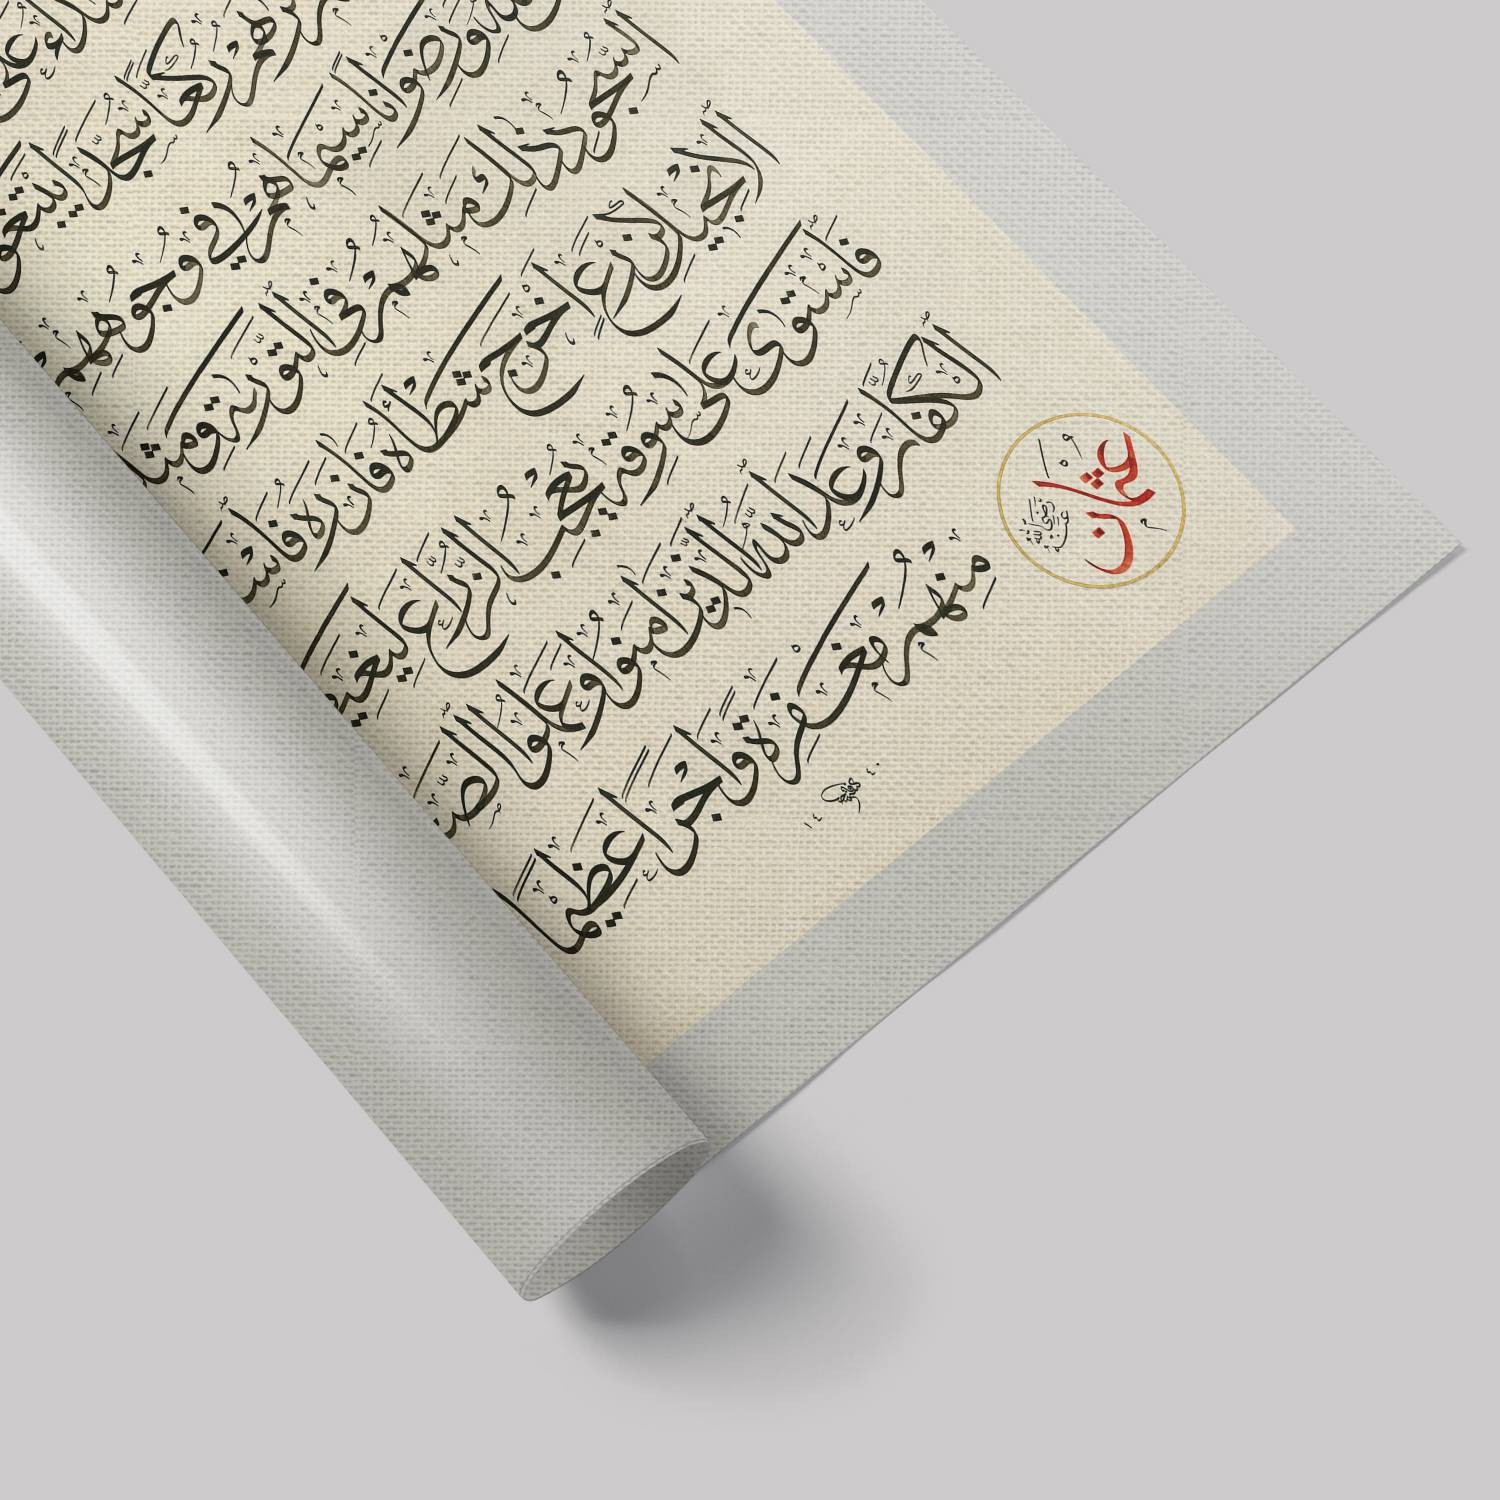 على
هُمْ رُكَّعًا سُجَّدًا يَبْتَغُو
وَرِضْوَانًا سِيمَاهُمْ فِي وُجُوهِهِمْ
السُّجُودِ ذَلِكَ مَثَلُهُمْ فِي التَّوْرَىةِ وَمَثَلُ
الْإِنْجِيلِ كَزَرْعٍ أَخْرَجَ شَطْأَهُ فَآزَرَهُ فَاسْتَ
فَاسْتَوَى عَلَى سُوقِهِ يُعْجِبُ الزُّرَّاعَ لِيَغِيظَ
الْكُفَّارَ وَعَدَ اللَّهُ الَّذِينَ آمَنُوا وَعَمِلُوا الصَّ
مِنْهُمْ مَغْفِرَةً وَأَجْرًا عَظِيمًا
عُثْمَان
رَضِيَ اللَّهُ عَنْهُ
١٤ ٤٠